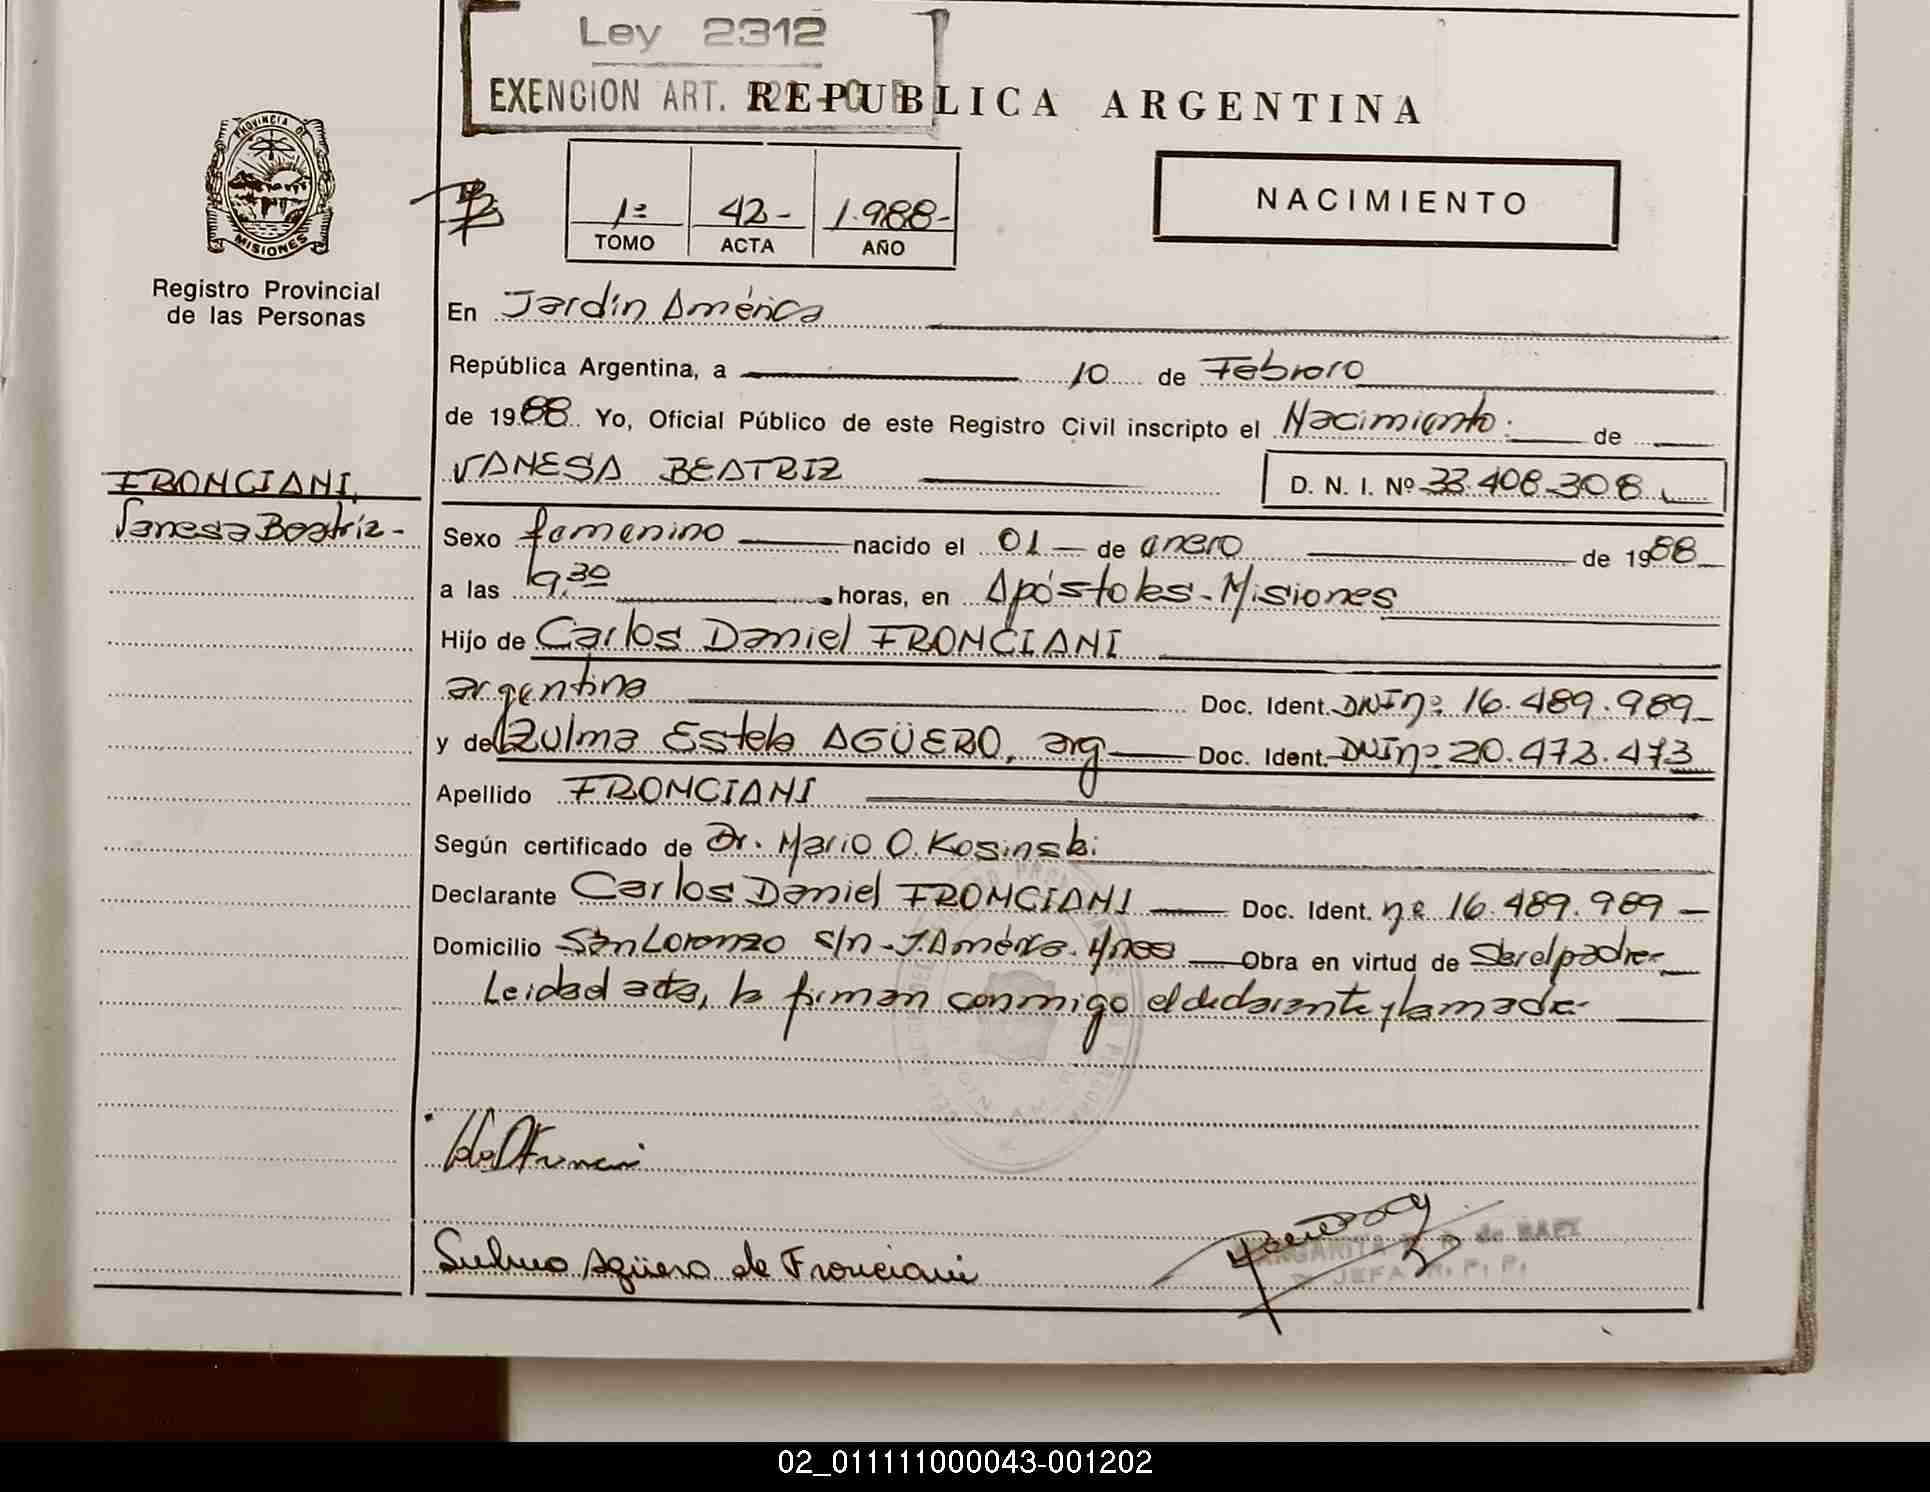 Ley 2312
EXENCION ART.
REPUBLICA ARGENTINA
PROVINCIA DE
MISIONES
Registro Provincial
de las Personas
1º 42- 1.988-
TOMO ACTA AÑO
NACIMIENTO
En Jardín América
República Argentina, a 10 de Febrero
de 1988 Yo, Oficial Público de este Registro Civil inscripto el Nacimiento: de
FRONCIANI,
Vanesa Beatriz-
VANESA BEATRIZ D. N. I. Nº 33.408.308
Sexo femenino nacido el 01 de enero de 1988
a las 19,30 horas, en Apóstoles-Misiones
Hijo de Carlos Daniel FRONCIANI
argentina Doc. Ident. DNI nº 16.489.989-
y de Zulma Estela AGÜERO, arg Doc. Ident. DNI nº 20.473.473
Apellido FRONCIANI
Según certificado de Dr. Mario O. Kosinski
Declarante Carlos Daniel FRONCIANI Doc. Ident. nº 16.489.989
Domicilio San Lorenzo s/n-J. América. Mnes Obra en virtud de Ser el padre-
Leida el acta, la firman conmigo el declarante y la madre-
Sulma Agüero de Fronciani
MARGARITA de BAEZ
JEFA R. P. P.
02_011111000043-001202